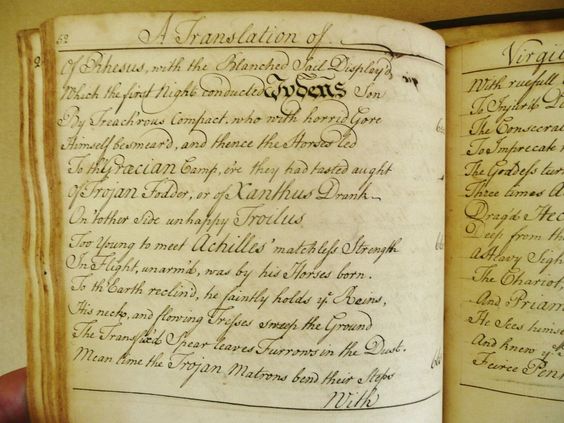 62 A Translation of
Of Rhesus, with the Blanched Sail Display'd,
Which the first Night conducted Tydeus Son
By Treachrous Compact, who with horrid Gore
Himself besmeard, and thence the Horses led
To th' Gracian Camp, e're they had tasted aught
Of Trojan Fodder, or of Xanthus Drank
On 'tother Side unhappy Troilus
Too young to meet Achilles' matchless Strength
In Flight, unarm'd, was by his Horses born.
To th' Earth reclin'd, he faintly holds ye Reins,
His neck, and flowing Tresses sweep the Ground
The Transfix'd Spear leaves Furrows in the Dust.
Mean time the Trojan Matrons bend their Steps
With
Virgil
With ruefull
To
The Consecra
To Imprecate
The Goddess tur
Three times A
Drag'd Hec
Deep from th
A Heavy Sigh
The Chariot,
And Priam
He Sees
And knew ye
Feirce Pen